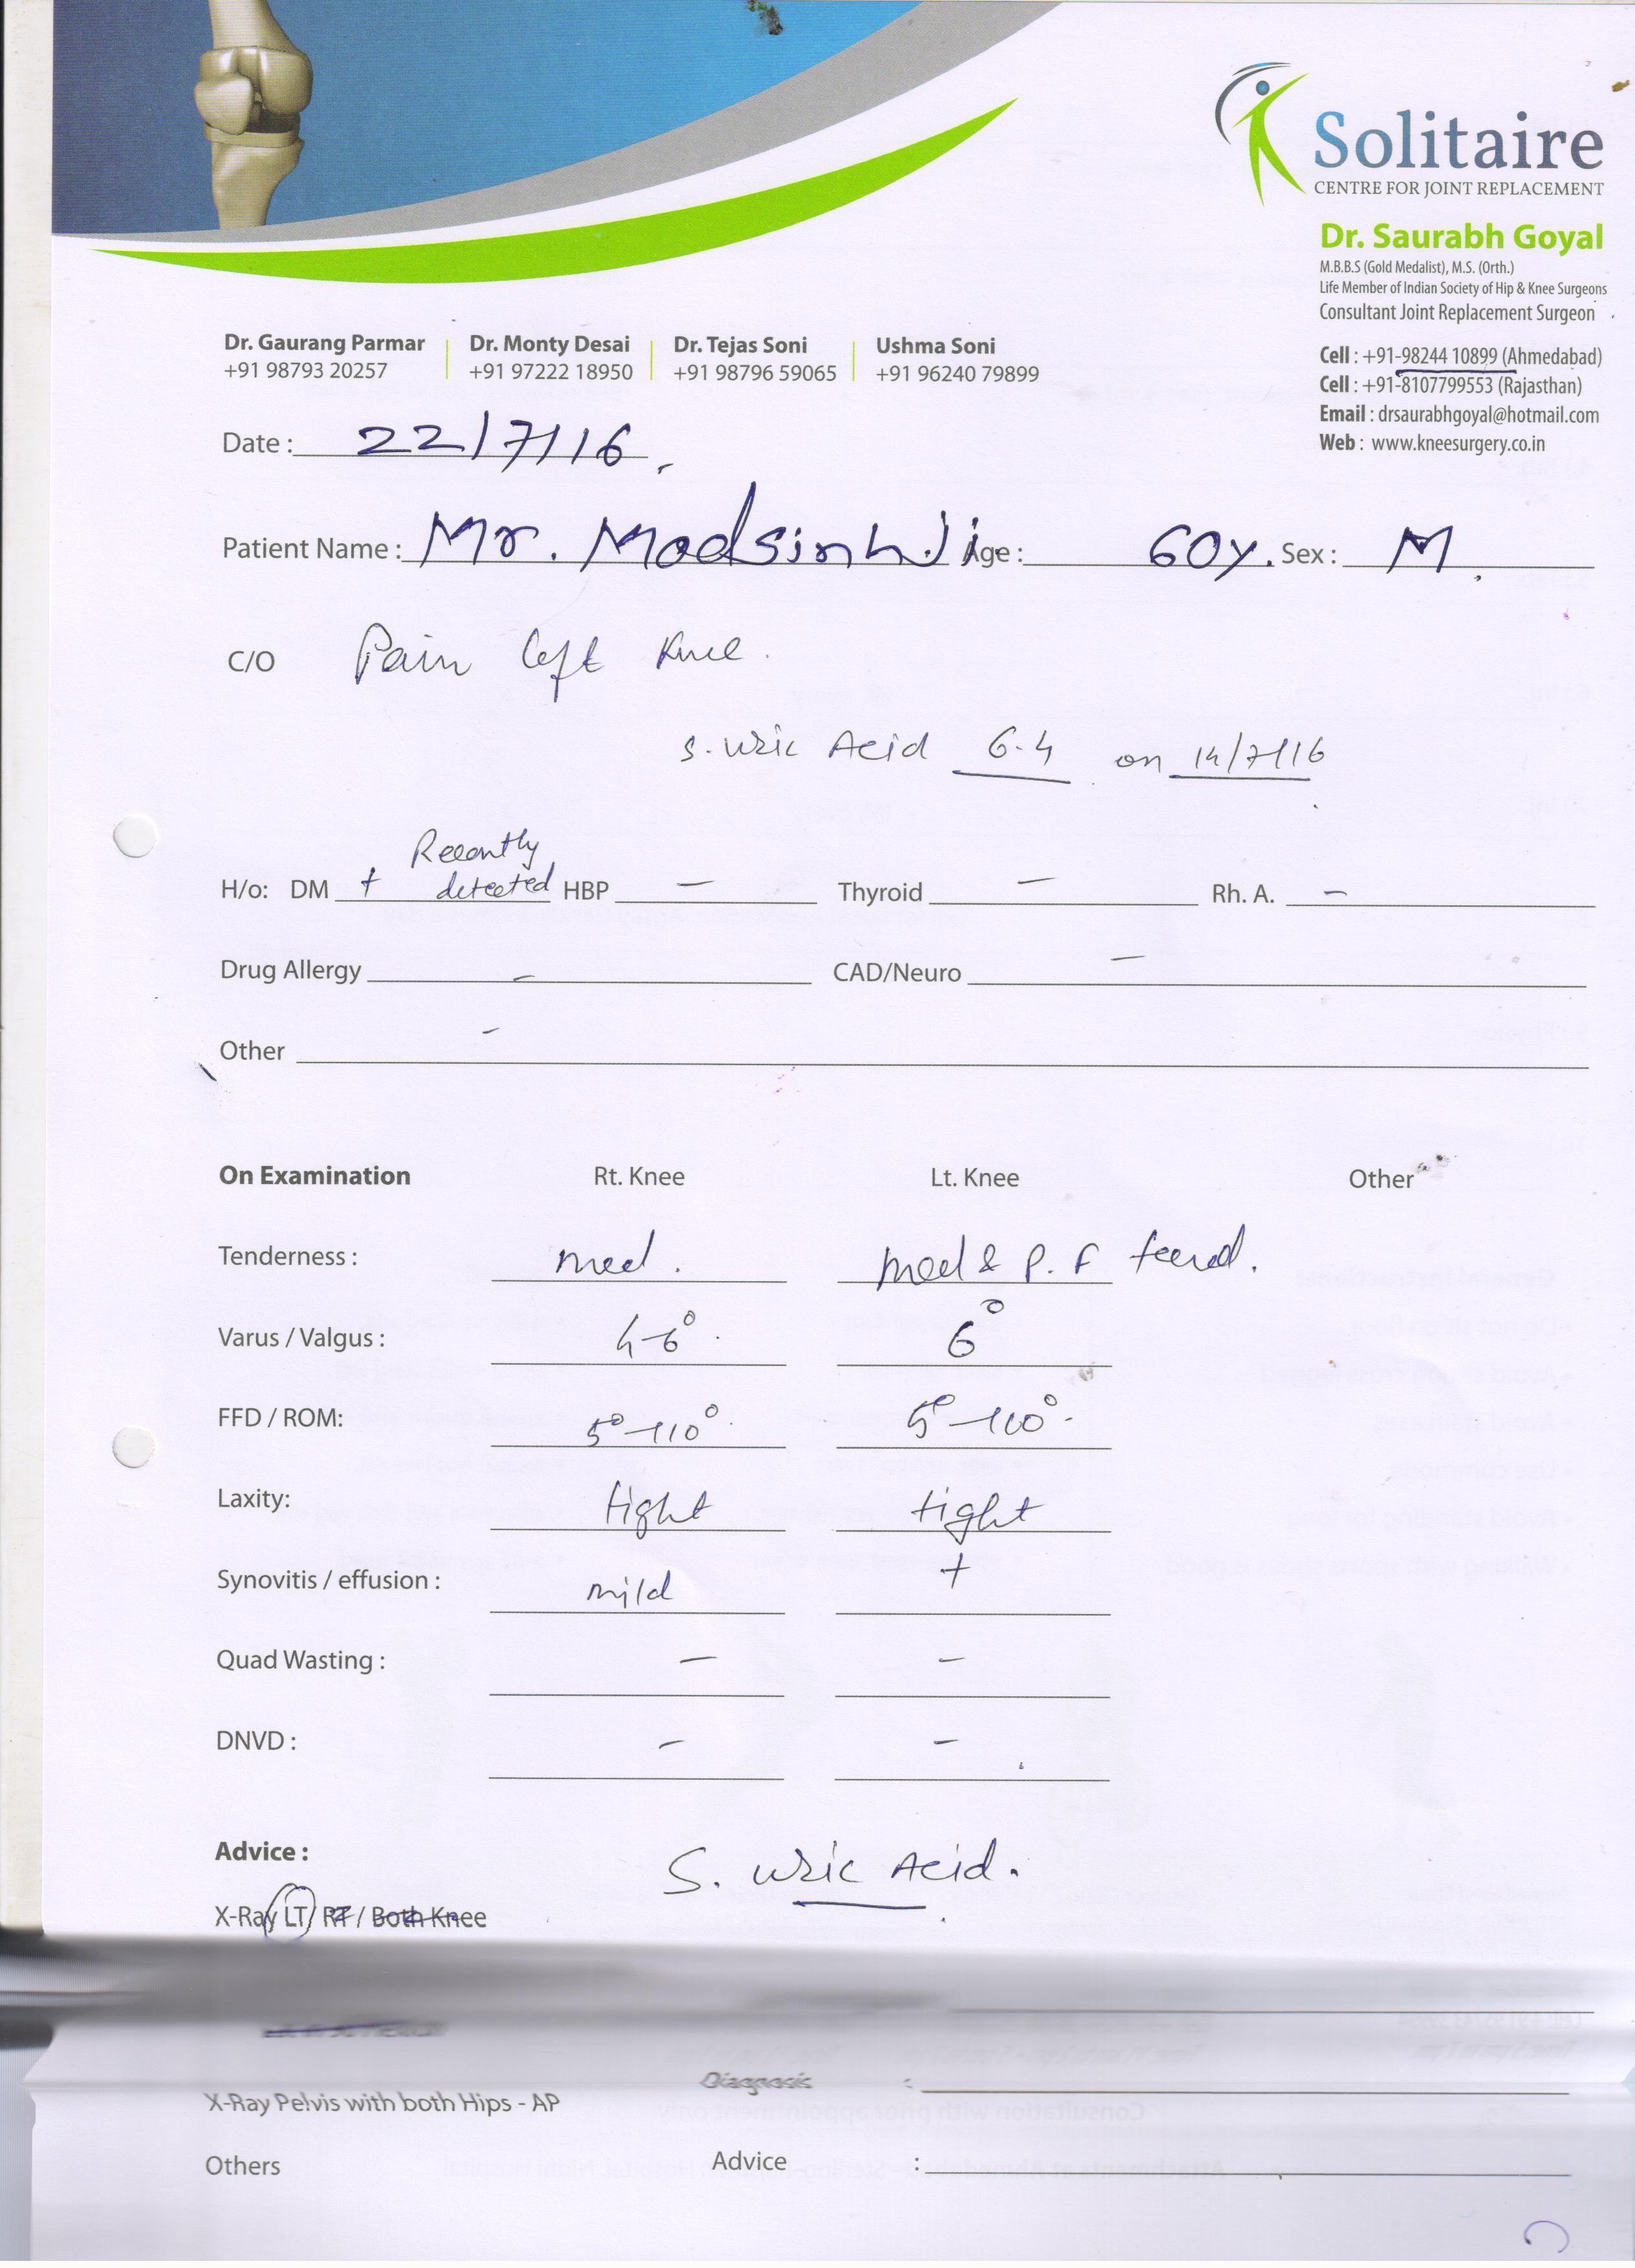 Solitaire
CENTRE FOR JOINT REPLACEMENT
Dr. Saurabh Goyal
M.B.B.S (Gold Medalist), M.S. (Orth.)
Life Member of Indian Society of Hip & Knee Surgeons
Consultant Joint Replacement Surgeon
Cell : +91-98244 10899 (Ahmedabad)
Cell : +91-8107799553 (Rajasthan)
Email : drsaurabhgoyal@hotmail.com
Web : www.kneesurgery.co.in
Dr. Gaurang Parmar Dr. Monty Desai Dr. Tejas Soni Ushma Soni
+91 98793 20257 +91 97222 18950 +91 98796 59065 +91 96240 79899
Date : 22/7/16
Patient Name : Mr. Modsinh Ji. Age : 60y. Sex : M
C/O Pain left Knee.
S. Uric Acid 6.4 on 14/7/16
Recently
H/o: DM + detected HBP – Thyroid – Rh. A. –
Drug Allergy – CAD/Neuro –
Other –
On Examination Rt. Knee Lt. Knee Other
Tenderness : med. med & P.F
Varus / Valgus : 4-6° 6°
FFD / ROM: 5°-110° 5°-100°
Laxity: tight tight
Synovitis / effusion : mild +
Quad Wasting : – –
DNVD : – –
Advice : S. Uric Acid.
X-Ray LT/ RT / Both Knee
Diagnosis :
X-Ray Pelvis with both Hips - AP
Others Advice :